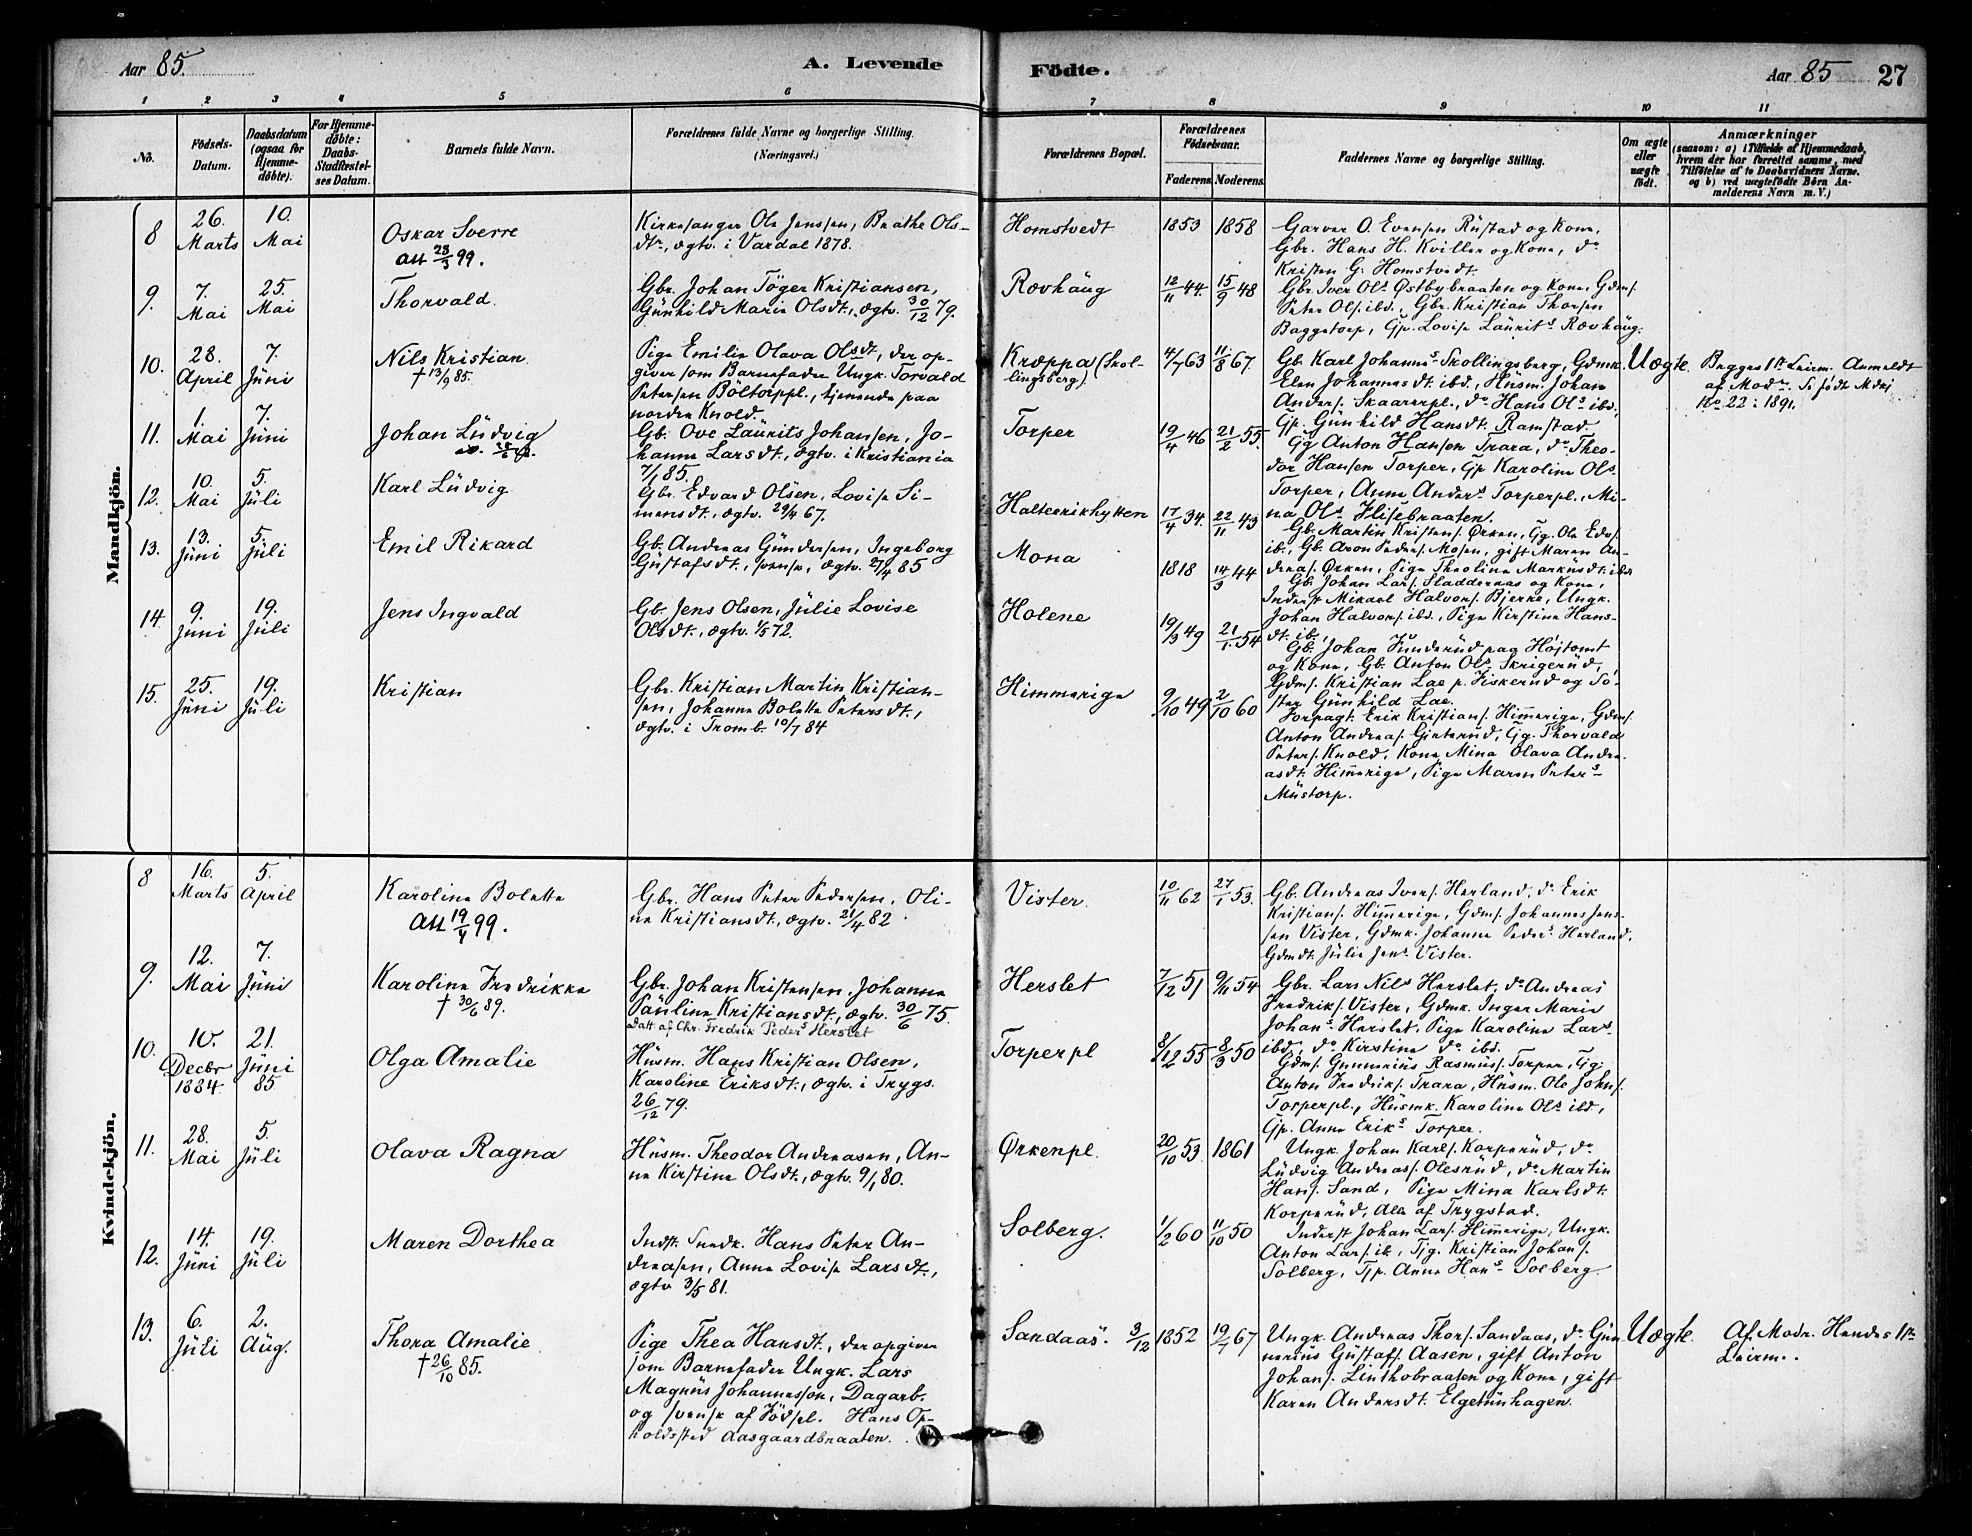 Aar 85.
A. Levende
Födte.
Aar 85
27
1 2 3 4 5 6 7 8 9 10 11
No.
Födsels-
Datum.
Daabsdatum
(ogsaa for
Hjemme-
döbte).
For Hjemme-
döbte:
Daabs-
Stadfæstel-
ses Datum.
Barnets fulde Navn.
Forældrenes fulde Navne og borgerlige Stilling.
(Næringsvei.)
Forældrenes Bopæl.
Forældrenes
Födselsaar.
Faderens. Moderens.
Faddernes Navne og borgerlige Stilling.
Om ægte
eller
uægte
födt.
Anmærkninger
(saasom: a) i Tilfælde af Hjemmedaab,
hvem der har forrettet samme, med
Tilföielse af to Daabsvidners Navne,
og b) ved uægtefödte Börn An-
melderens Navn m. V.)
Mandkjön.
8
26.
Marts
10.
Mai
Oskar Sverre
att 28/3 99.
Kirkesanger Ole Jenssen, Beathe Ols-
dtr., ægtv. i Vardal 1878.
Homstvedt
1853
1858
Garver O. Evensen Rüstad og Kone,
Gbr. Hans H. Kviller og Kone, do
Kristen G. Homstvedt.
9.
7.
Mai
25.
Mai
Thorvald
Gbr. Johan Töger Kristiansen,
Günhild Marie Olsdt., ægtv. 30/12 79.
Rovhäug
12/11 44.
15/9 48
Gbr. Iver Ols. Østbybraaten og Kone, Gdms.
Peter Ols. ibd., Gbr. Kristian Thorsen
Baggetorp, Gp. Lovise Laürits. Rævhäug.
10.
28.
April
7.
Jüni
Nils Kristian
† 13/9 85.
Pige Emilie Olava Olsdt, der op-
giver som Barnefader Ungk. Torvald
Petersen Böltorppl., tjenende paa
nordre Knold.
Kræppa (Skol-
lingsberg)
4/7 63
11/8 67.
Gb. Karl Johannes. Skollingsberg, Gdmk.
Elen Johannesdt. ibd., Hüsm. Johan
Anders. Skaarerpl., do Hans Ols. ibd.,
Gp. Günhild Hansdt. Ramstad.
Uægte.
Begges 1ste Leirm. Anmeldt
af Modr. Se födt Mdkj
No 22 i 1891.
11.
1.
Mai
7.
Jüni
Johan Lüdvig
Gb. Ove Laürits Johansen, Jo-
hanne Larsdt., ægtv. i Kristiania
7/1 85.
Torper
19/4 46
21/2 55.
Gg Anton Hansen Trara, do Theo-
dor Hansen Torper, Gp Karoline Ols.
Torper, Anne Anders. Torperpl., Mi-
na Ols. Hisebraaten.
12.
10.
Mai
5.
Jüli
Karl Lüdvig
Gbr. Edvard Olsen, Lovise Si-
mensdt., ægtv. 29/4 67.
Halteerikhytten
17/4 34.
22/11 43
Gb. Martin Kristens. Ørken, Gg. Ole Edvs.
ib., Gb. Aron Peders. Mosen, gift Maren An-
dreas. Ørken, Pige Theoline Marküsdt. ibd.
13.
13.
Jüni
5.
Jüli
Emil Rikard
Gb. Andreas Gündersen, Ingeborg
Güstafsdt., svensk, ægtv. 27/4 85
Mona
1818
14/3 44
Gb. Johan Lars. Sladdernæs og Kone,
Inderst Mikael Halvors. Bjerke, Ungk.
Johan Halvors. ibd., Pige Kirstine Hans-
dt. ib.
14
9.
Jüni
19.
Jüli
Jens Ingvald
Gb. Jens Olsen, Jülie Lovise
Olsdt., ægtv. 1/5 72.
Holene
19/3 49
21/1 54
Gb. Johan Fünderüd paa Höjtomt
og Kone, Gb. Anton Ols. Skrigerüd,
Gdms. Kristian Lae p. Fiskerüd og Sö-
ster Günhild Lae.
15.
25.
Jüni
19.
Jüli
Kristian
Gbr. Kristian Martin Kristian-
sen, Johanne Bolette Petersdt.,
ægtv. i Tromb. 10/7 84
Himmerige
9/10 49
2/10 60
Forpagt. Erik Kristians. Himerige, Gdms.
Anton Andreas. Ginterüd, Gg. Thorvald
Peters. Knold, Kone Mina Olava Andre-
asdt. Himerige, Pige Maren Peters.
Müstorp.
Kvindekjön.
8
16.
Marts
5.
April
Karoline Bolette
att 19/4 99.
Gbr. Hans Peter Pedersen, Oli-
ne Kristiansdt., ægtv. 21/4 82
Vister.
10/11 62
27/1 53.
Gb. Andreas Ivers. Herland, do Erik
Kristians. Himerige, Gdms. Johannes Jens-
sen Vister, Gdmk. Johanne Peders. Herland,
Gdmdt. Jülie Jens. Vister.
9.
12.
Mai
7.
Jüni
Karoline Fredrikke
† 30/6 89.
Gbr. Johan Kristensen, Johanne
Päüline Kristiansdt., ægtv. 30/6 75.
Datt. af Chr. Fredrik Peders Herslet
Herslet
7/12 51
9/11 54
Gbr. Lars Nils. Herslet, do Andreas
Fredriks. Vister, Gdmk. Inger Marie
Johans. Herslet, Pige Karoline Lars.
ibd., do Kirstine do ibd.
10.
10.
Decbr
1884.
21.
Jüni
85
Olga Amalie
Hüsm. Hans Kristian Olsen,
Karoline Eriksdt., ægtv. i Trygs.
26/12 79.
Torperpl
8/12 55
8/3 50
Gdms. Gunnerius Rasmüs. Torper, Gg
Anton Fredriks. Trara, Hüsm. Ole Johs.
Torperpl., Hüsmk. Karoline Ols. ibd,
Gp. Anne Eriks. Torper.
11.
28.
Mai
5.
Jüli
Olava Ragna
Hüsm. Theodor Andreasen, An-
ne Kirstine Olsdt., ægtv. 9/1 80.
Ørkenpl.
20/10 53.
1861
Ungk. Johan Karls. Korperüd, do
Lüdvig Andreas. Olesrüd, do Martin
Hans. Sand, Pige Mina Karlsdt.
Korperüd, Alle af Trygstad.
12.
14.
Jüni
19.
Jüli
Maren Dorthea
Indst. Snedk. Hans Peter An-
dreasen, Anne Lovise Larsdt.,
ægtv. 3/5 81.
Solberg.
1/2 60
11/10 50
Inderst Johan Lars. Himerige, Ungk.
Anton Lars. ib., Tjg. Kristian Johans.
Solberg, Tjp. Anne Hans. Solberg.
13.
6.
Jüli
2.
Äüg.
Thora Amalie
† 26/10 85.
Pige Thea Hansdt., der opgiver
som Barnefader Ungk. Lars
Magnüs Johannesson, Dagarb.
og svensk af Födsel. Hans Op-
holdssted Aasgaardbraaten.
Sandaas.
3/12 1852
19/7 67
Ungk. Andreas Thors. Sandaas, do Gün-
nerius Güstafs. Aasen, gift Anton
Johans. Linthobraaten og Kone, gift
Karen Andersdt. Elgetünhagen.
Uægte.
Af Modr. Hendes 1ste
Leirm.